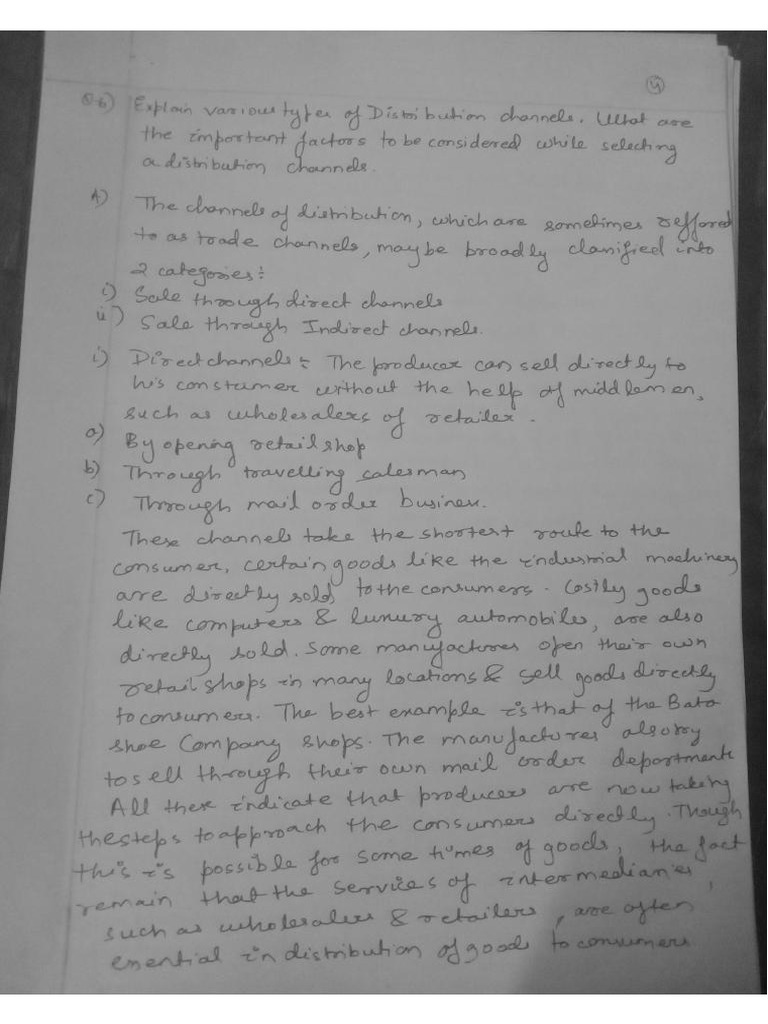 4
Q.6) Explain various types of Distribution channels. What are
the important factors to be considered while selecting
a distribution channels.
A) The channels of distribution, which are sometimes reffored
to as trade channels, may be broadly classified into
2 categories:
i) Sale through direct channels
ii) Sale through Indirect channels.
i) Direct channels: The producer can sell directly to
his constumer without the help of middlemen,
such as wholesalers of retailer.
a) By opening retail shop
b) Through travelling salesman
c) Through mail order business.
These channels take the shortest route to the
consumer, certain goods like the industrial machinery
are directly sold to the consumers. Costly goods
like computers & luxury automobiles, are also
directly sold. Some manufactures open their own
retail shops in many locations & sell goods directly
to consumers. The best example is that of the Bata
shoe Company shops. The manufactures also try
to sell through their own mail order departments
All these indicate that producers are now taking
the steps to approach the consumers directly. Though
this is possible for some times of goods, the fact
remain that the services of intermediaries,
such as wholesalers & retailers, are often
essential in distribution of goods to consumers